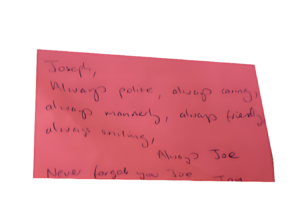 Joseph,
Always polite, always caring,
always mannerly, always friendly
always smiling,
Always Joe
Never forget you Joe